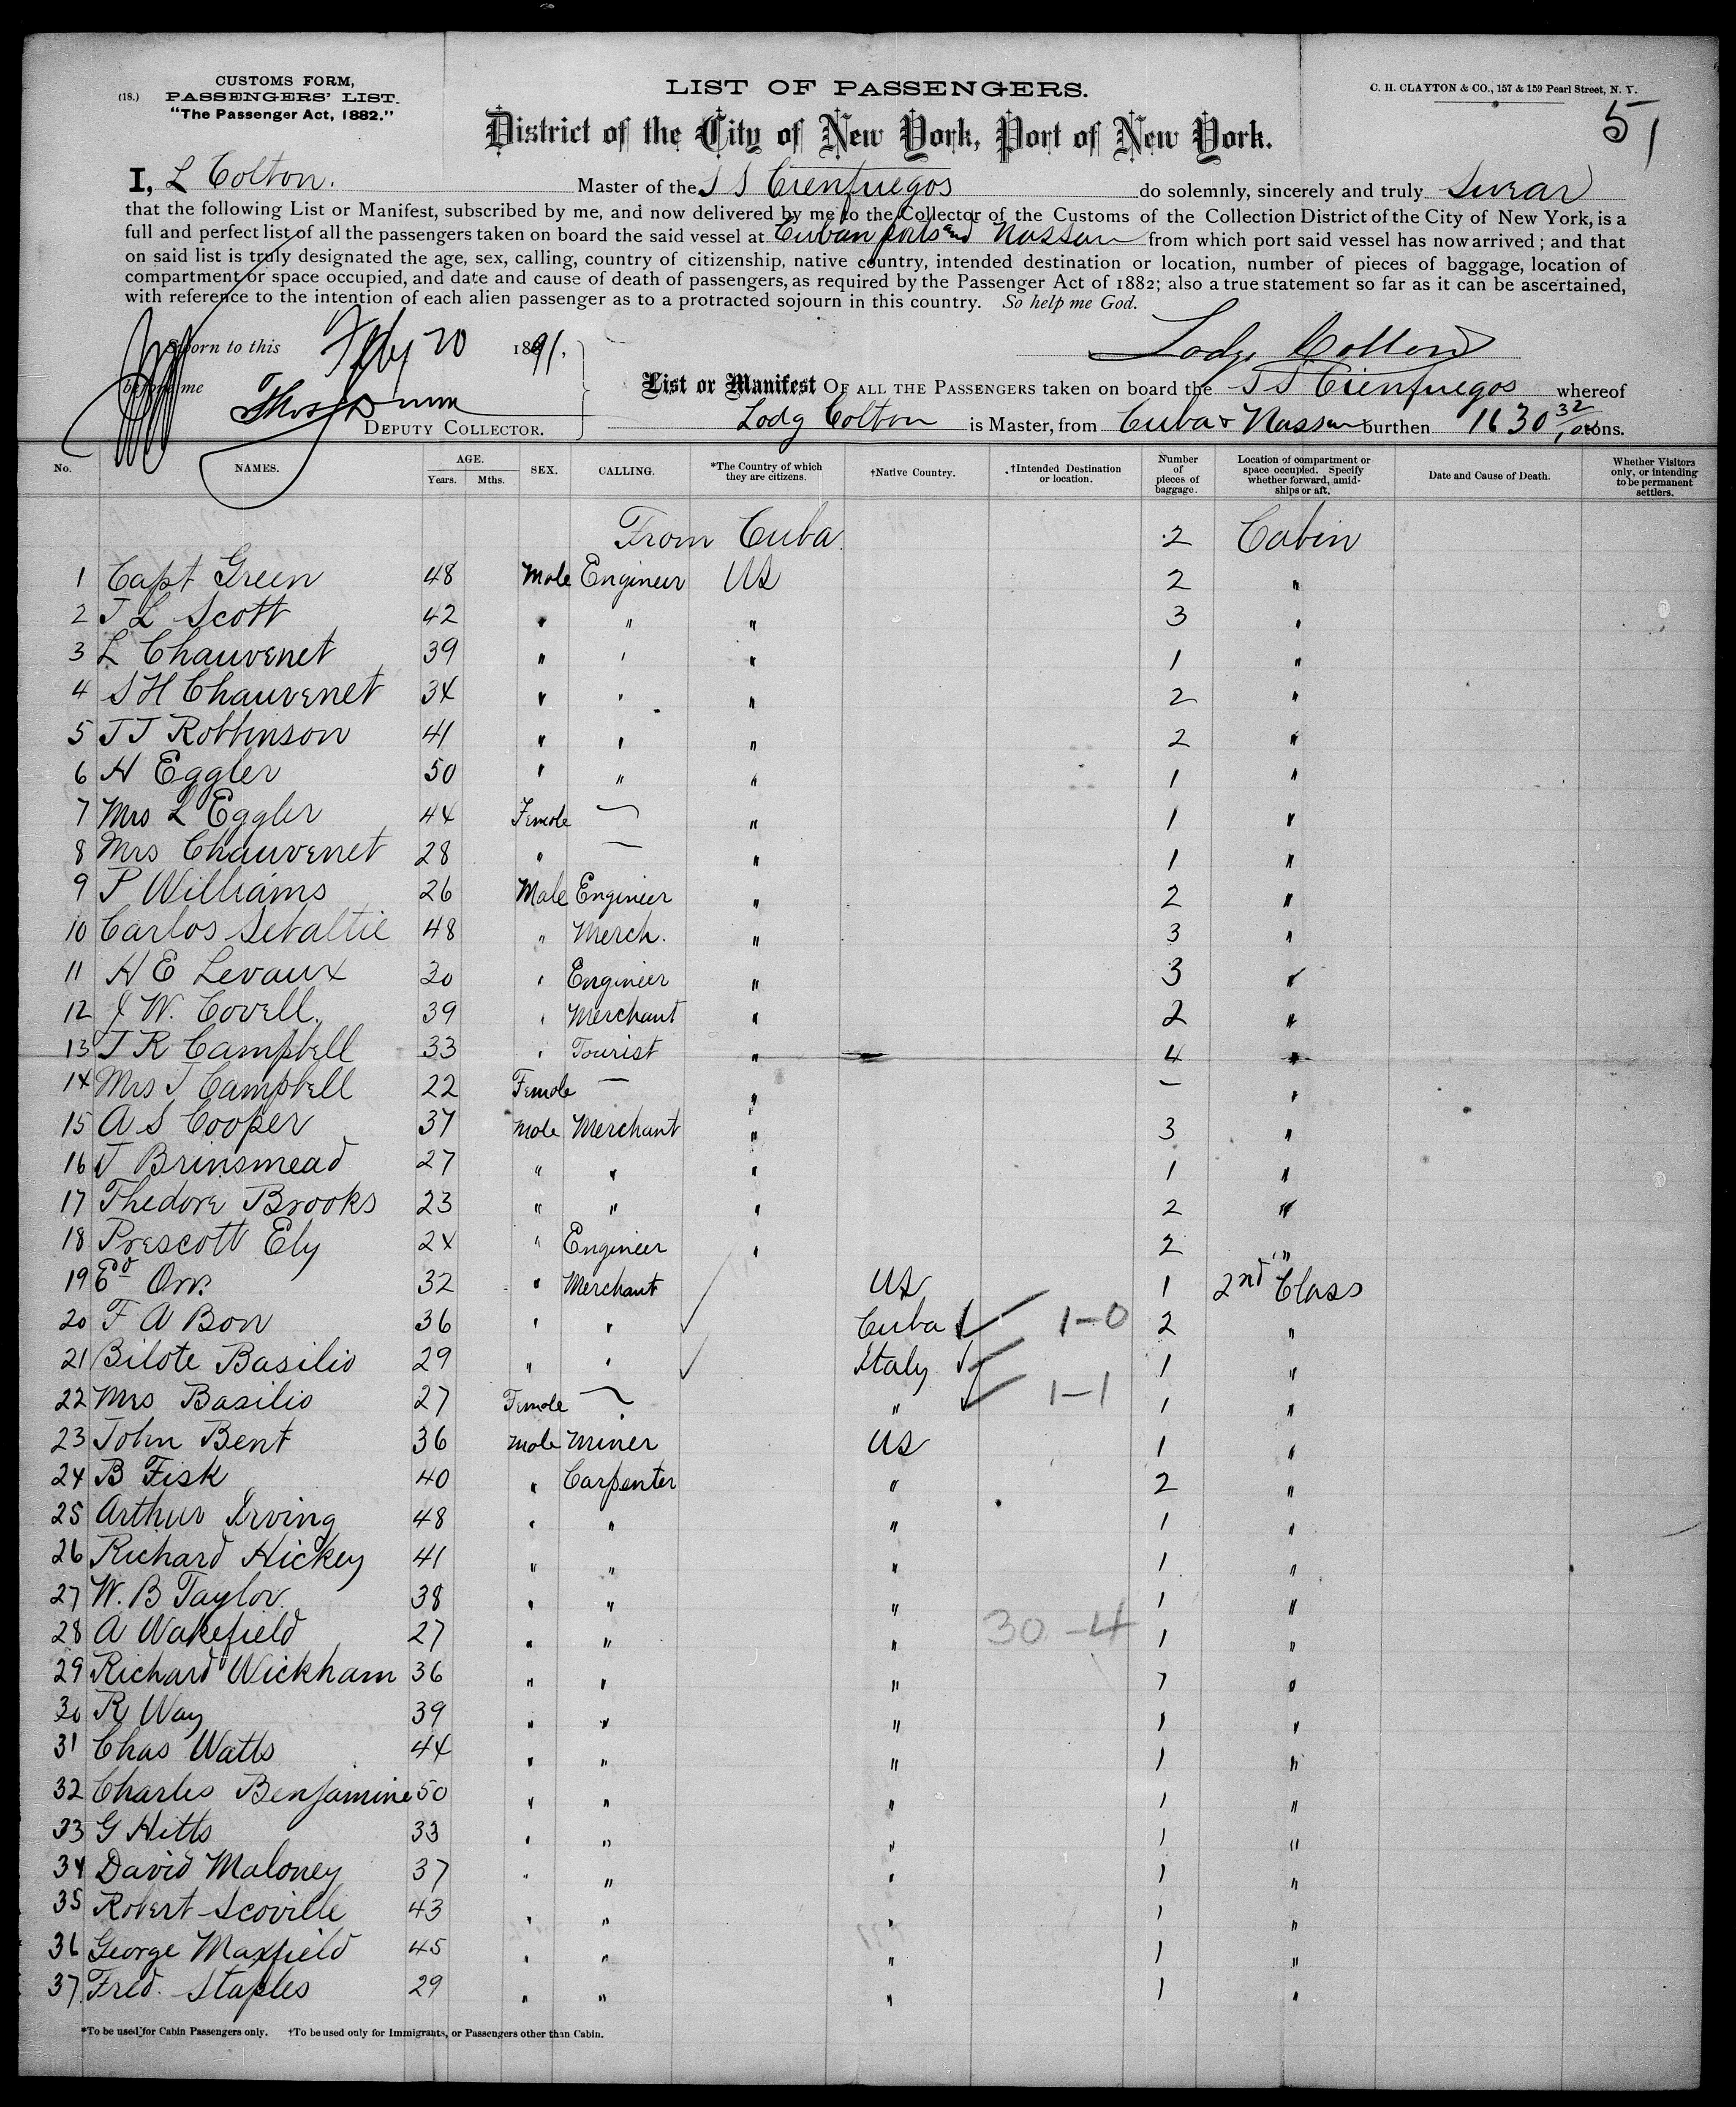 (18.)
CUSTOMS FORM,
PASSENGERS' LIST.
"The Passenger Act, 1882."
LIST OF PASSENGERS.
C. H. CLAYTON & CO., 157 & 159 Pearl Street, N. Y.
51
District of the City of New York, Port of New York.
I, L Colton. Master of the S S Cienfuegos do solemnly, sincerely and truly Swear
that the following List or Manifest, subscribed by me, and now delivered by me to the Collector of the Customs of the Collection District of the City of New York, is a
full and perfect list of all the passengers taken on board the said vessel at Cuban ports and Nassau from which port said vessel has now arrived; and that
on said list is truly designated the age, sex, calling, country of citizenship, native country, intended destination or location, number of pieces of baggage, location of
compartment or space occupied, and date and cause of death of passengers, as required by the Passenger Act of 1882; also a true statement so far as it can be ascertained,
with reference to the intention of each alien passenger as to a protracted sojourn in this country. So help me God.
Sworn to this Feby 20 1891.
Lodg Colton
before me Thos Dunn
DEPUTY COLLECTOR.
List or Manifest OF ALL THE PASSENGERS taken on board the S S Cienfuegos whereof
Lodg Colton is Master, from Cuba & Nassau burthen 1630 32/100 tons.
No. NAMES. AGE. Years. Mths. SEX. CALLING. *The Country of which they are citizens. †Native Country. †Intended Destination or location. Number of pieces of baggage. Location of compartment or space occupied. Specify whether forward, amidships or aft. Date and Cause of Death. Whether Visitors only, or intending to be permanent settlers.
From Cuba 2 Cabin
1 Capt Green 48 Male Engineer US 2 "
2 J L Scott 42 " " " 3 "
3 L Chauvenet 39 " " " 1 "
4 S H Chauvenet 34 " " " 2 "
5 J J Robbinson 41 " " " 2 "
6 H Eggler 50 " " " 1 "
7 Mrs L Eggler 44 Female — " 1 "
8 Mrs Chauvenet 28 " — " 1 "
9 P Williams 26 Male Engineer " 2 "
10 Carlos 48 " Merch. " 3 "
11 H E Levaux 30 " Engineer " 3 "
12 J W. Covell. 39 " Merchant " 2 "
13 J R Campbell 33 " Tourist " 4 "
14 Mrs J Campbell 22 Female — " — "
15 A S Cooper 37 Male Merchant " 3 "
16 J Brinsmead 27 " " " 1 "
17 Thedore Brooks 23 " " " 2 "
18 Prescott Ely 24 " Engineer " 2 "
19 Ed Orr. 32 " Merchant US 1 2nd Class
20 F A Bon 36 " " Cuba 1-0 2 "
21 Bilote Basilio 29 " " Italy 1 "
22 Mrs Basilio 27 Female — " 1-1 1 "
23 John Bent 36 Male Miner US 1 "
24 B Fisk 40 " Carpenter " 2 "
25 Arthur Irving 48 " " " 1 "
26 Richard Hickey 41 " " " 1 "
27 W. B Taylor 38 " " " 1 "
28 A Wakefield 27 " " " 30-4 1 "
29 Richard Wickham 36 " " " 1 "
30 R Way 39 " " " 1 "
31 Chas Watts 44 " " " 1 "
32 Charles Benjamine 50 " " " 1 "
33 G Hitts 33 " " " 1 "
34 David Maloney 37 " " " 1 "
35 Robert Scoville 43 " " " 1 "
36 George Maxfield 45 " " " 1 "
37 Fred. Staples 29 " " " 1 "
*To be used for Cabin Passengers only. †To be used only for Immigrants, or Passengers other than Cabin.